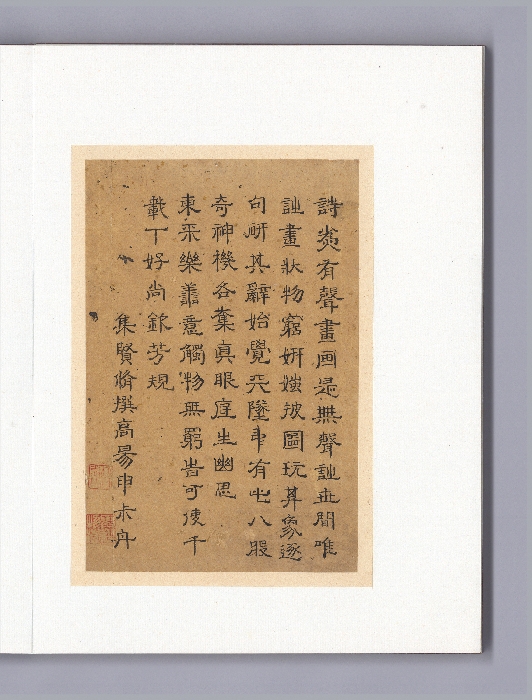 詩為有聲畫画是無聲詩世間唯
詩畫狀物窮妍媸披圖玩其象逐
句研其辭始覺天墜中有此八股
奇神機各藁真眼底生幽思
東平樂善意觸物無窮皆可使千
載下好尚欽芳規
集賢脩撰高昜申屠舟